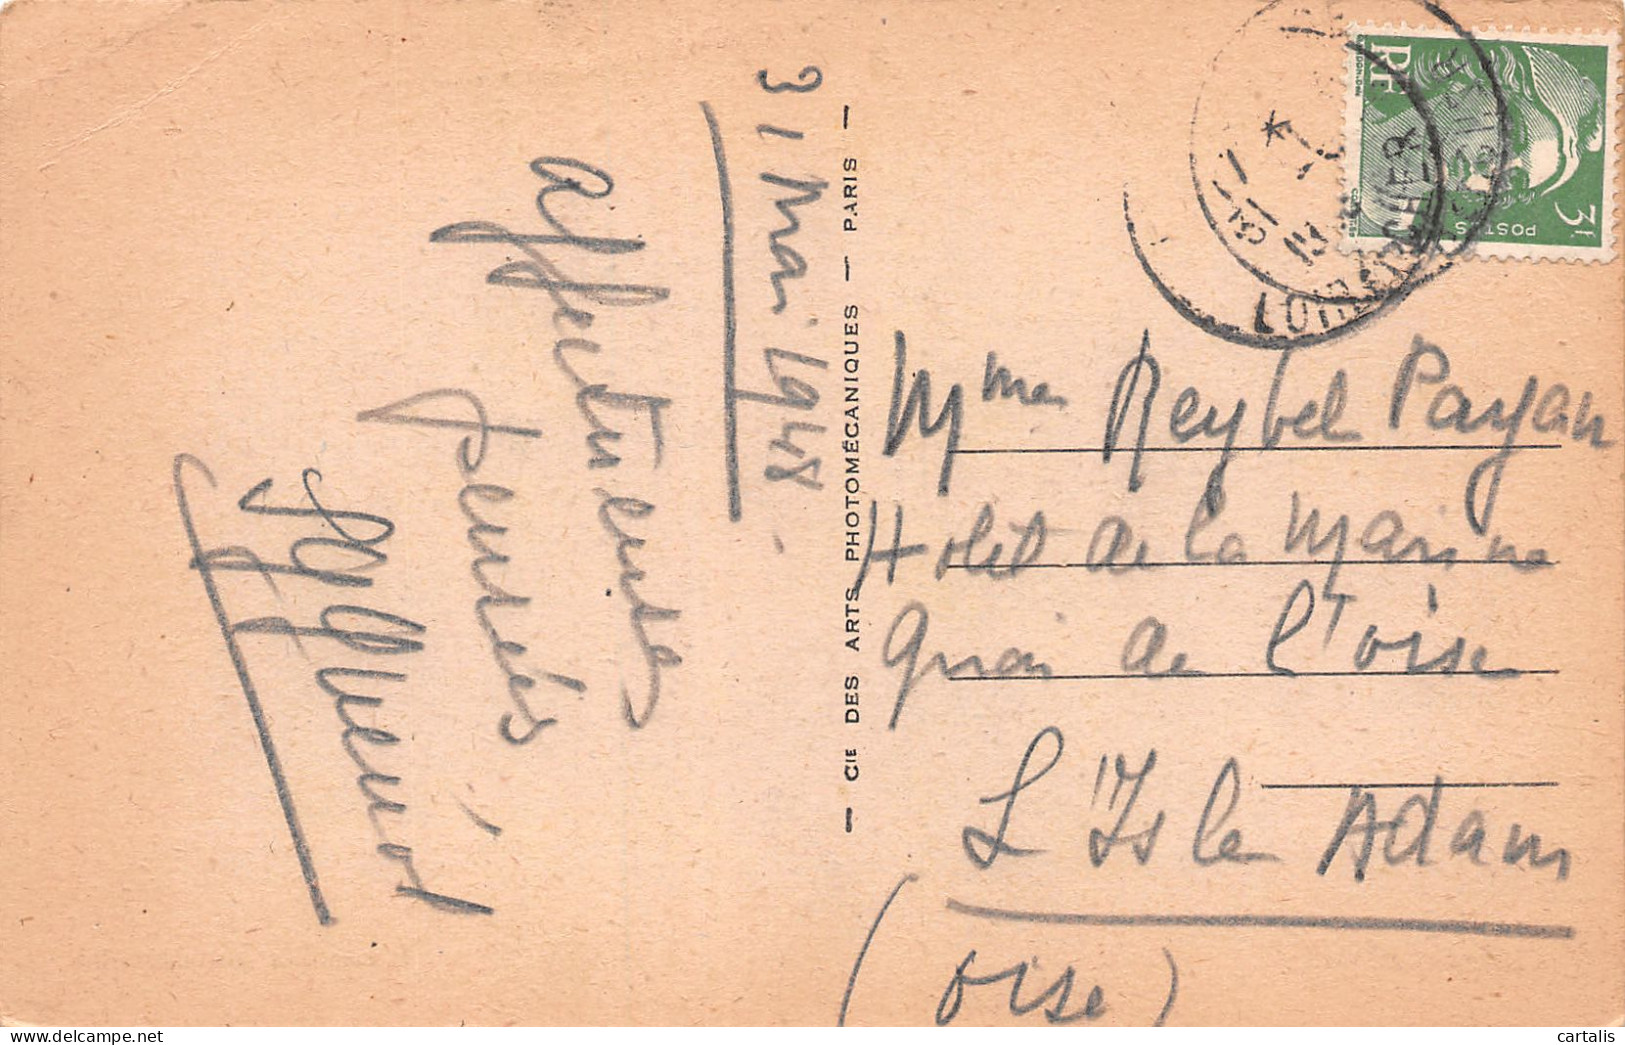 31 Mai 1948.
affectueuses
pensées
— CIE DES ARTS PHOTOMÉCANIQUES — PARIS —
RF
3f
POSTES
LOIR-ET-CHER
Mme Reybel Payan
Hotel de la Marine
Quai de l'oise
L'Isle Adam
(oise)
cartalis